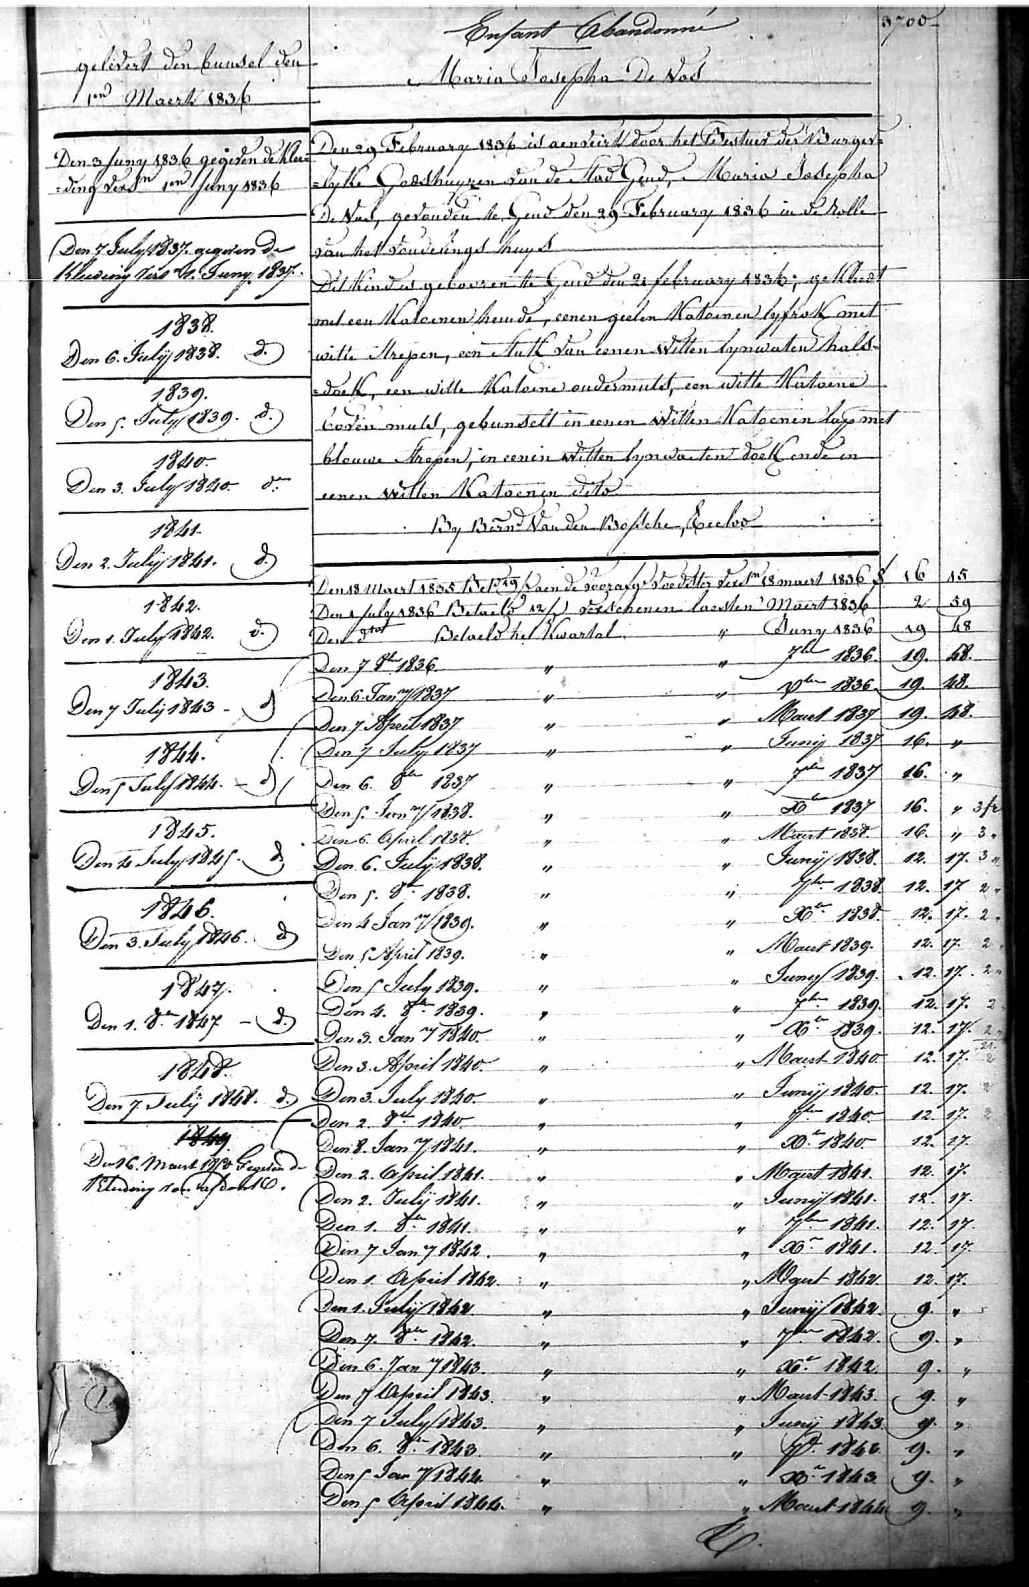 Enfant Abandonné
3700
Maria Josepha De Vos
gelevert den bunsel den
1en Maert 1836
Den 3 Juny 1836 gegeven de klee-
=ding 1en Juny 1836
Den 7 July 1837. gegeven de
kleeding 1. Juny 1837.
1838.
Den 6. July 1838. d.
1839.
Den 5. July 1839. d.
1840.
Den 3. July 1840. do
1841.
Den 2. July 1841. d.
1842.
Den 1. July 1842. d.
1843.
Den 7 July 1843 - d
1844.
Den 5 July 1844. - d
1845.
Den 4 July 1845. d
1846.
Den 3. July 1846. d
1847.
Den 1. 8er 1847 - d.
1848.
Den 7. July 1848. d.
1849
Den 16. Maert gegeven de
kleeding
Den 29 February 1836 is aenveirt door het Bestuer der Burger=
=lyke Godshuyzen van de Stad Gend, Maria Josepha
De Vos, gevonden te Gend den 29 February 1836 in de Rolle
van het vondelings huys
Dit kind is gebooren te Gend den 21 february 1836; gekleed
met een katoenen hemde, eenen geelen katoenen lyfrok met
witte strepen, een stuk van eenen witten lynwaten hals-
=doek, een witte katoene ondermuts, een witte katoene
boven muts, gebunselt in eenen witten katoenen lap met
blauwe strepen, in eenen witten lynwaeten doek ende in
eenen witten katoenen dito
By Bernd Van den Bossche, Eecloo
Den 18 Maert 1835 Bet. aen de voorafge voedster 18 maert 1836 16 15
Den 1 July 1836 Betaeld 12/ verschenen laesten Maert 1836 2 59
Den dito Betaeld het Kwartal " Juny 1836 19 48
Den 7 8er 1836. " " 7ber 1836. 19. 48.
Den 6 Jany 1837 " " Xber 1836 19. 48.
Den 7 April 1837 " " Maert 1837 19. 48.
Den 7 July 1837 " " Juny 1837 16. "
Den 6. 8er 1837 " " 7ber 1837 16. "
Den 5. Jany 1838. " " Xer 1837 16. " 3 fr
Den 6. April 1838. " " Maert 1838 16. " 3 "
Den 6. July 1838. " " Juny 1838. 12. 17. 3 "
Den 5. 8er 1838. " " 7ber 1838 12. 17 2 "
Den 4 Jany 1839. " " Xer 1838. 12. 17. 2 "
Den 5 April 1839. " " Maert 1839. 12. 17. 2 "
Den 5 July 1839. " " Juny 1839. 12. 17. 2 "
Den 4. 8er 1839. " " 7ber 1839. 12. 17. 2
Den 3. Jany 1840. " " Xer 1839. 12. 17. 2
Den 3. April 1840. " " Maert 1840 12. 17. 2
Den 3. July 1840. " " Juny 1840. 12. 17. 2
Den 2. 8er 1840. " " 7ber 1840. 12. 17. 2
Den 8. Jany 1841. " " Xer 1840 12. 17.
Den 2. April 1841. " " Maert 1841. 12. 17.
Den 2. July 1841. " " Juny 1841. 12. 17.
Den 1. 8er 1841. " " 7ber 1841. 12. 17.
Den 7 Jany 1842 " " Xer 1841. 12. 17.
Den 1. April 1842 " " Maert 1842 12. 17.
Den 1. July 1842 " " Juny 1842 9. "
Den 7. 8er 1842. " " 7ber 1842. 9. "
Den 6. Jany 1843. " " Xer 1842. 9. "
Den 7 April 1843. " " Maert 1843. 9. "
Den 7 July 1843. " " Juny 1843. 9. "
Den 6. 8er 1843. " " 9. "
Den 5 Jany 1844. " " Xer 1843 9. "
Den 5 April 1844. " " Maert 1844 9. "